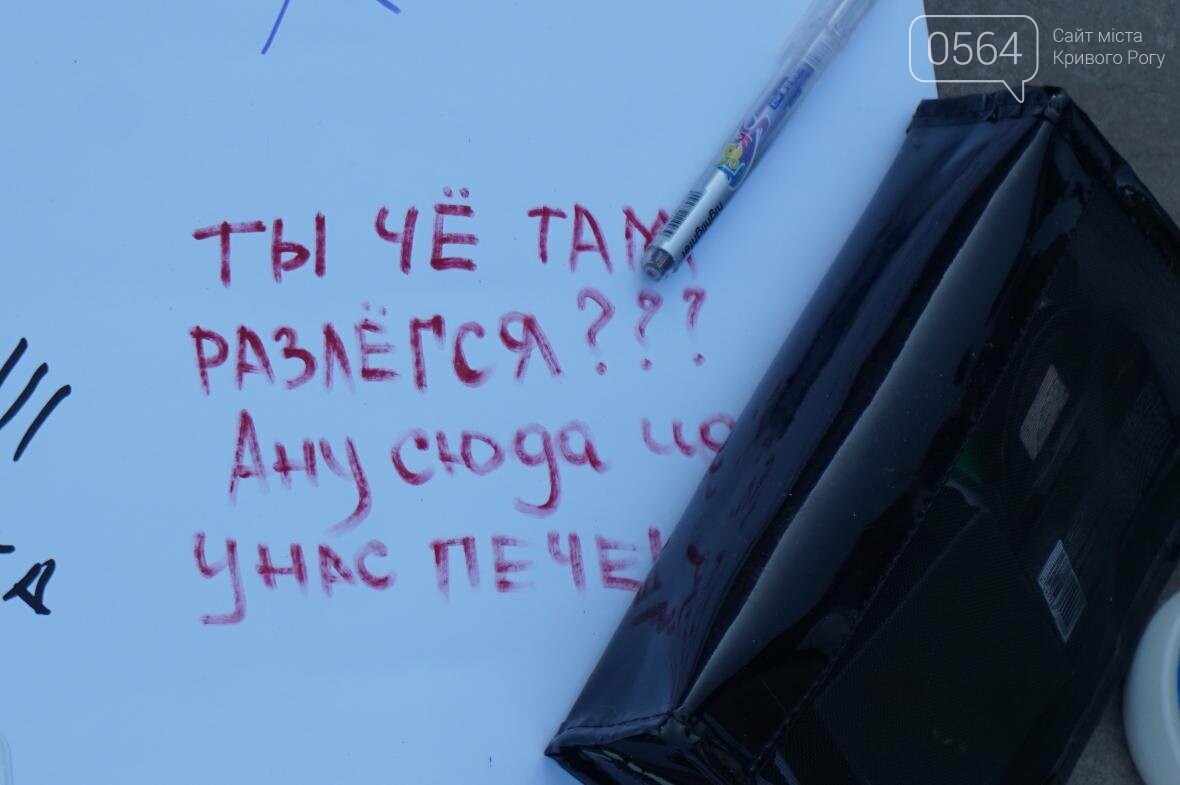 0564
Сайт міста
Кривого Рогу
ТЫ ЧЁ ТАМ
РАЗЛЁГСЯ???
Ану сюда
У НАС